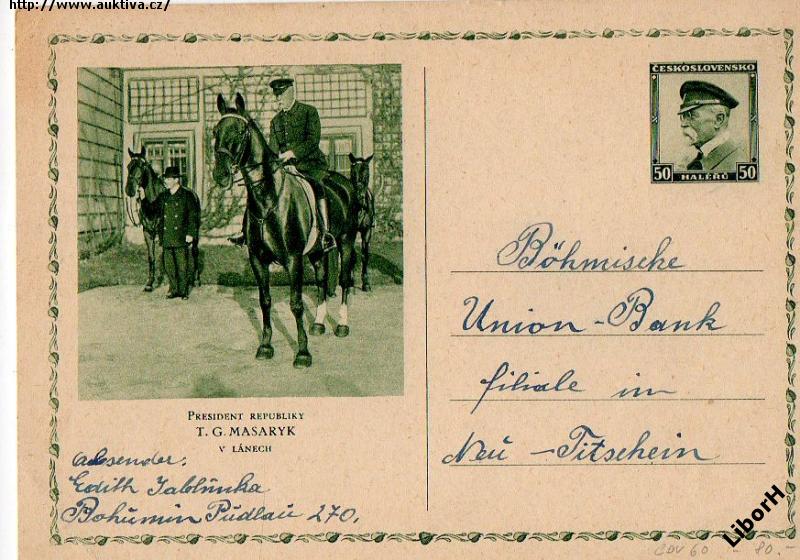 http://www.auktiva.cz/
ČESKOSLOVENSKO
50 HALÉŘŮ 50
Böhmische
Union-Bank
filiale in
Neŭ-Titschein
PRESIDENT REPUBLIKY
T. G. MASARYK
V LÁNECH
Absender:
Edith Jablŭnka
Bohŭmin Pŭdlaŭ 270.
CDV 60 80.-
LiborH